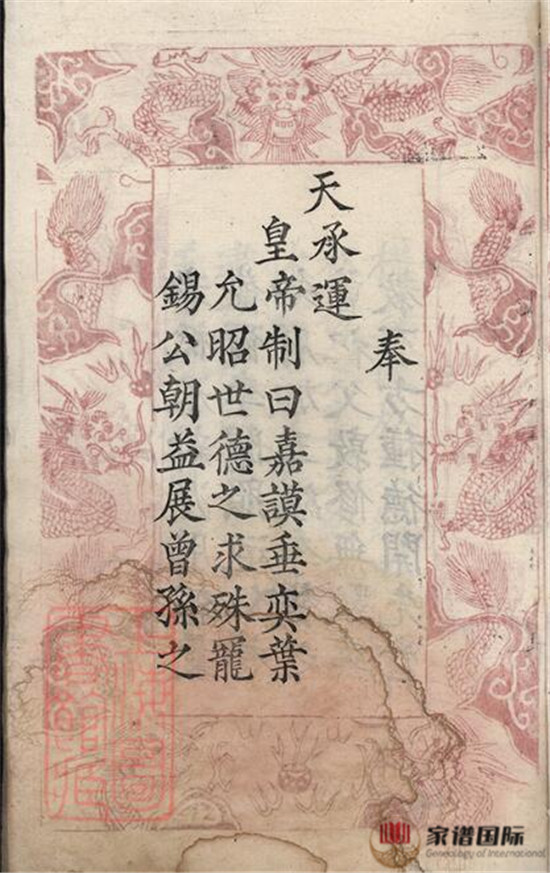 奉
天承運
皇帝制曰嘉謨垂奕葉
允昭世德之求殊寵
錫公朝益展曾孫之
家谱国际
Genealogy of International